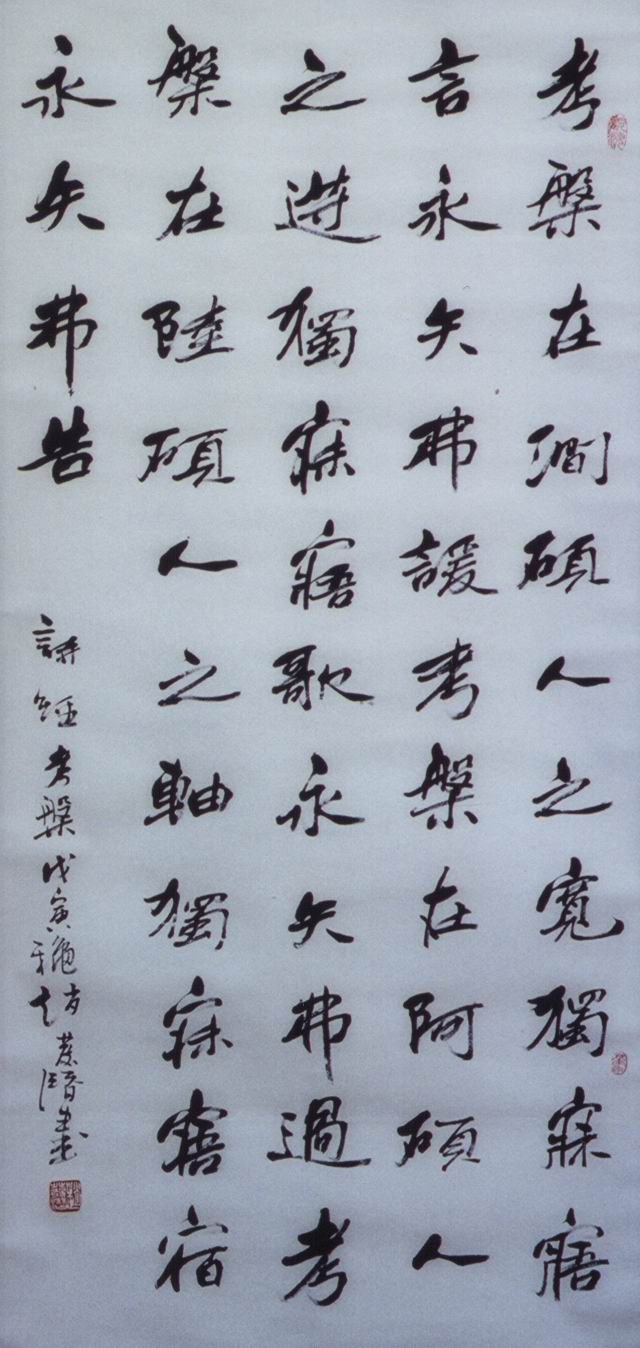 考槃在澗碩人之寬獨寐寤
言永矢弗諼考槃在阿碩人
之薖獨寐寤歌永矢弗過考
槃在陸碩人之軸獨寐寤宿
永矢弗告
詩經考槃戊寅穐書